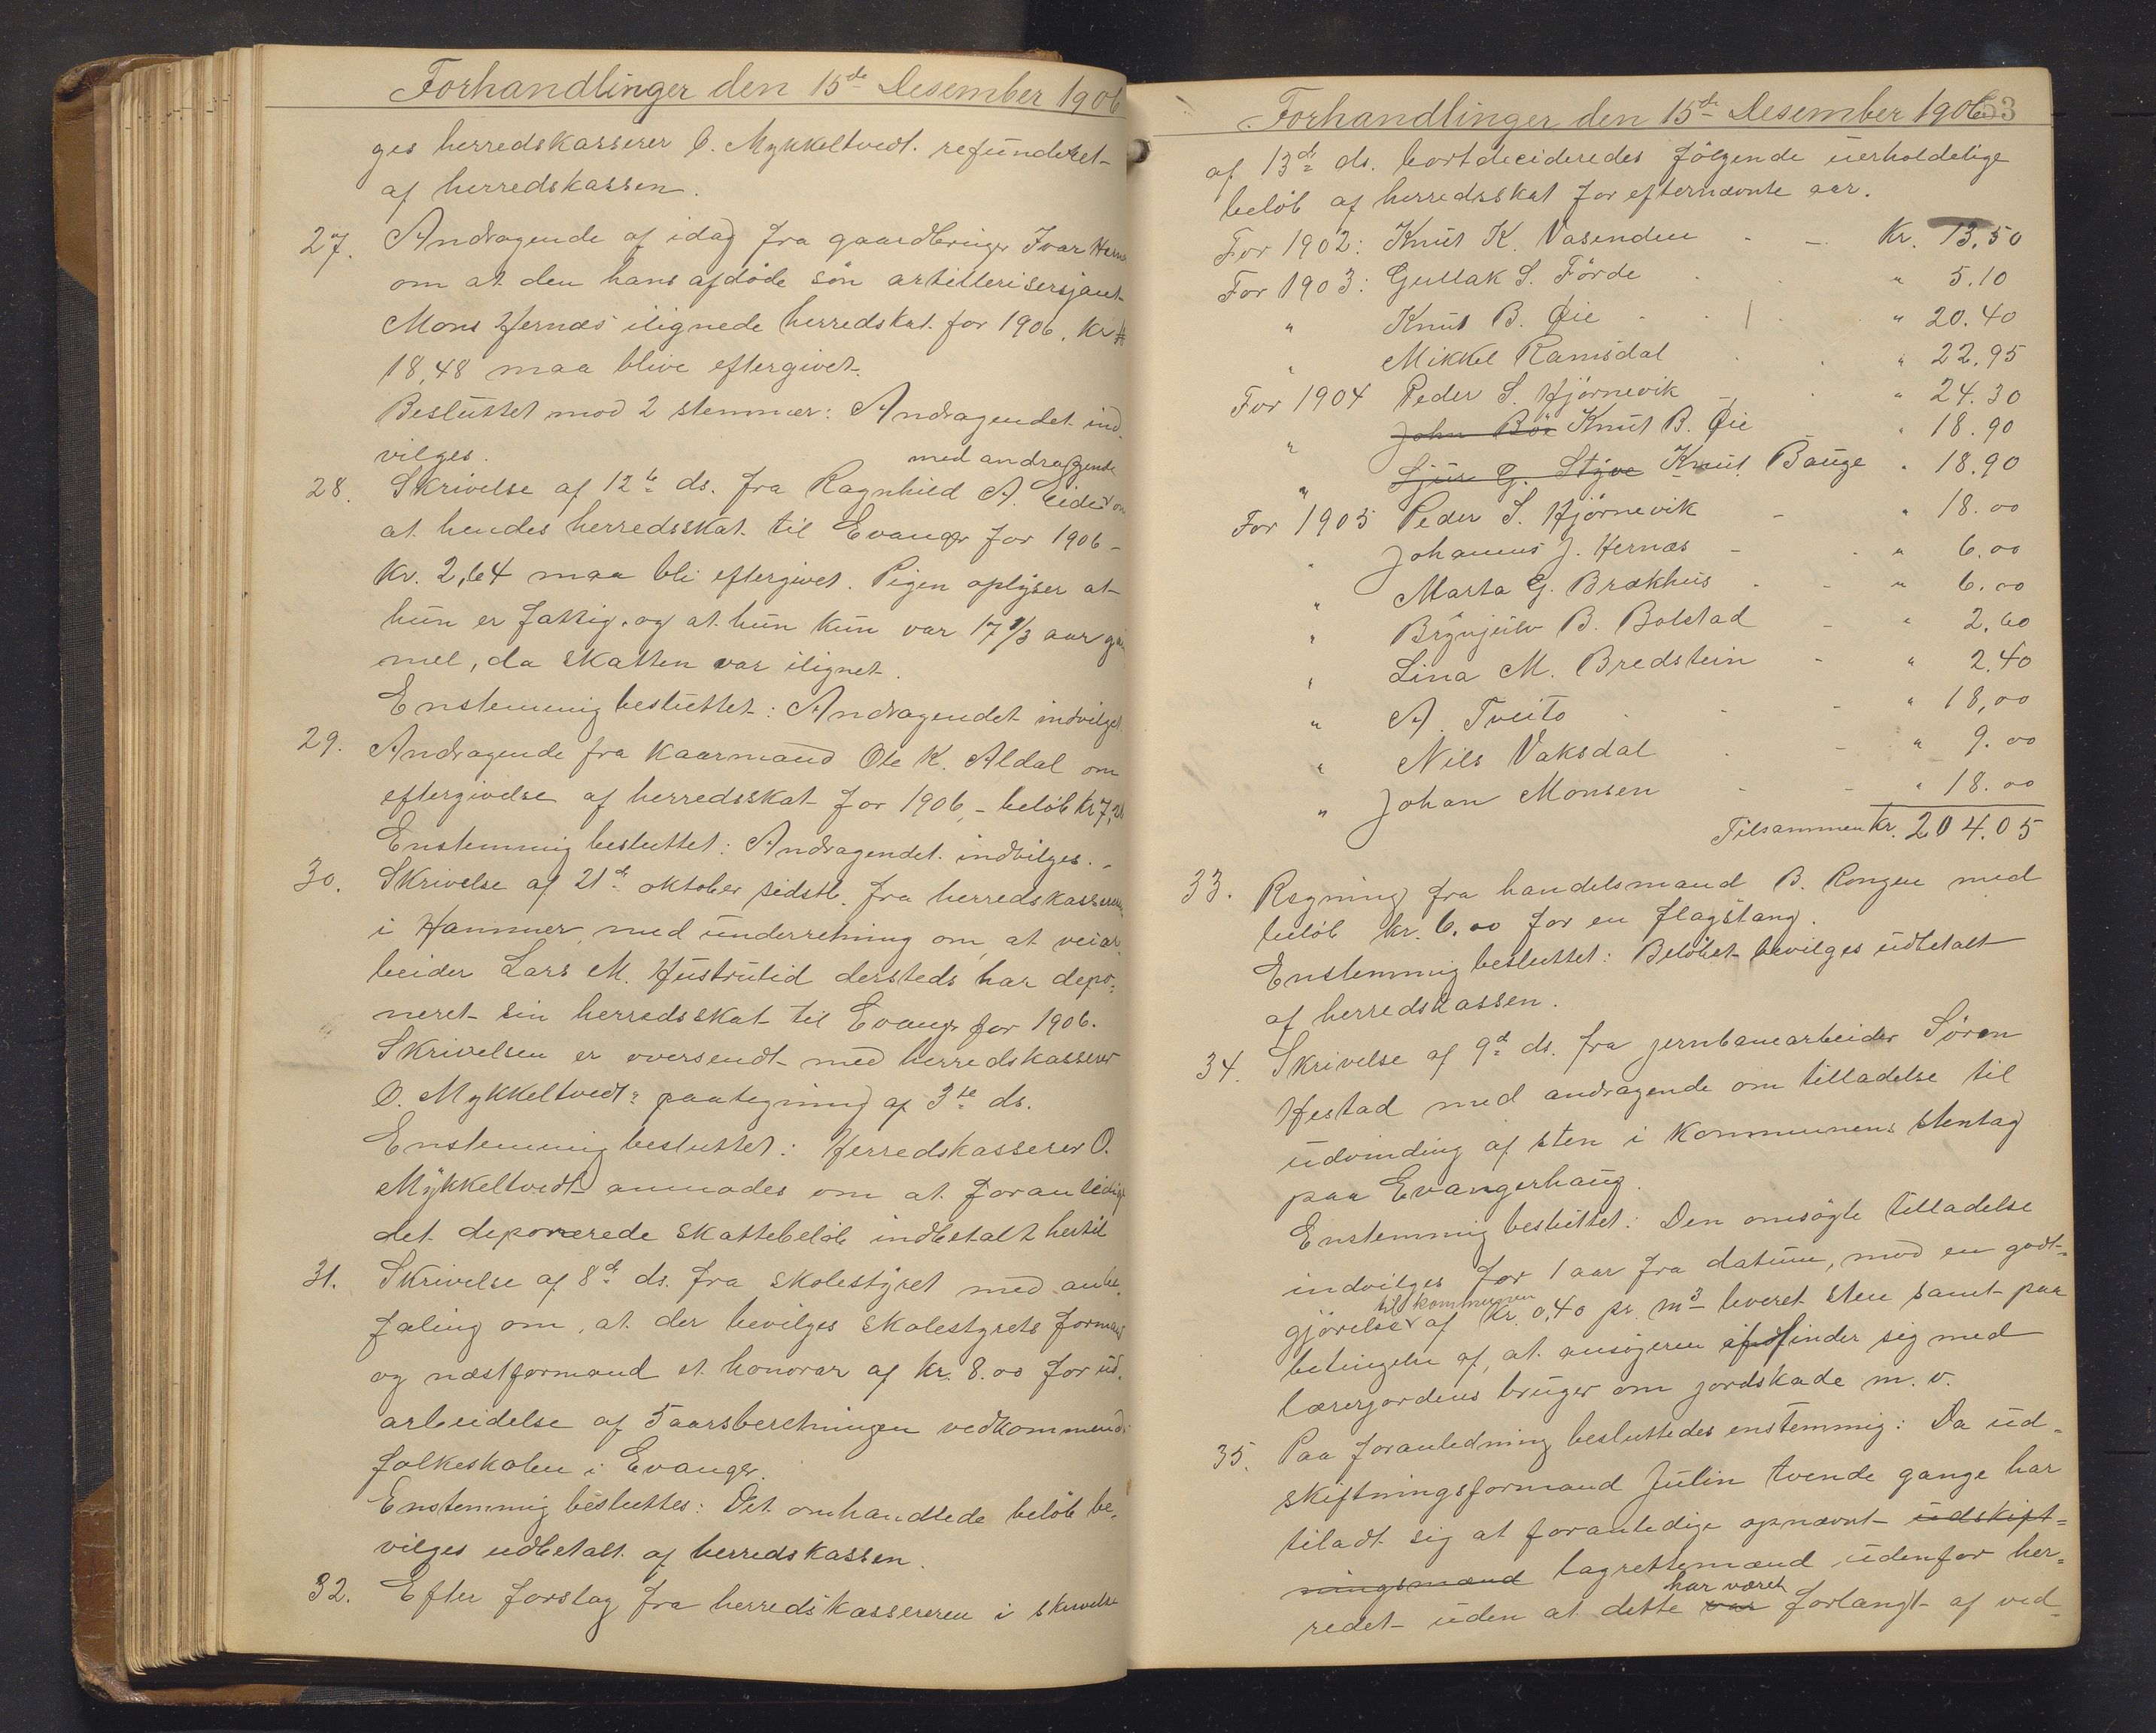 Forhandlinger den 15de Desember 1906
ges herredskasserer O. Mykkeltvedt refunderet
af herredskassen.
27. Andragende af idag fra gaardbruger Ivar Hernæs
om at den hans afdöde sön artillerisersjant
Mons Hernæs ilignede herredskat for 1906, kr
18,48 maa blive eftergivet.
Besluttet mod 2 stemmer: Andragendet ind-
vilges.
28. Skrivelse af 12te ds. fra Ragnhild A. Eide med andragende om
at hendes herredsskat til Evanger for 1906 -
kr. 2,64 maa bli eftergivet. Pigen oplyser at
hun er fattig, og at hun kun var 17 1/3 aar gam
mel, da skatten var ilignet.
Enstemmig besluttet: Andragendet indvilges
29. Andragende fra kaarmand Ole K. Aldal om
eftergivelse af herredsskat for 1906, - belöb kr 7,28
Enstemmig besluttet: Andragendet indvilges. -
30. Skrivelse af 21de oktober sidstl. fra herredskassereren
i Hammer, med underretning om, at veiar
beider Lars M. Hustrulid dersteds har depo-
neret sin herredsskat til Evanger for 1906.
Skrivelsen er oversendt med herredskasserer
O. Mykkeltvedts paategning af 3die ds.
Enstemmig besluttet: Herredskasserer O.
Mykkeltvedt anmodes om at foranledige
det deponerede skattebelöb indbetalt hertil
31. Skrivelse af 8de ds. fra skolestyret med anbe-
faling om, at der bevilges skolestyrets formand
og næstformand et honorar af kr. 8.00 for ud-
arbeidelse af 5aarsberetningen vedkommende
folkeskolen i Evanger.
Enstemmig besluttes: Det omhandlede belöb be-
vilges udbetalt af herredskassen.
32. Efter forslag fra herredskassereren i skrivelse
Forhandlinger den 15de Desember 1906 53
af 13de ds. bortdecideredes fölgende uerholdelige
belöb af herredsskat for efternævnte aar.
For 1902: Knut K. Vasenden - - Kr. 13.50
For 1903: Gullak S. Förde " 5.10
" Knut B. Øie " 20.40
" Mikkel Ramsdal " 22.95
For 1904 Peder S. Hjörnevik " 24.30
" John Bör Knut B. Øie " 18.90
" Sjur G. Styve Knut Bauge " 18.90
For 1905 Peder S. Hjörnevik - " 18.00
" Johannes J. Hernæs - " 6.00
" Marta G. Brækhus - " 6.00
" Brynjulv B. Bolstad - " 2.60
" Lina M. Bredstein - " 2.40
" A. Tveito - " 18,00
" Nils Vaksdal - " 9.00
" Johan Monsen - " 18.00
Tilsammen Kr. 204.05
33. Regning fra handelsmand B. Rongen med
belöb kr. 6.00 for en flagstang.
Enstemmig besluttet: Belöbet bevilges udbetalt
af herredskassen.
34. Skrivelse af 9de ds. fra jernbanearbeider Sören
Hestad med andragende om tilladelse til
udvinding af sten i kommunens stentag
paa Evangerhaug.
Enstemmig besluttet: Den omsögte tilladelse
indvilges for 1 aar fra datum, mod en godt-
gjörelse til kommunen af kr. 0,40 pr. m3 leveret sten samt paa
betingelse af, at ansögeren affinder sig med
lærerjordens bruger om jordskade m. v.
35. Paa foranledning besluttedes enstemmig: Da ud-
skiftningsformand Julin tvende gange har
tiladt sig at foranledige opnævnt udskift-
ningsmænd lagrettemænd udenfor her-
redet uden at dette var har været forlangt af ved-